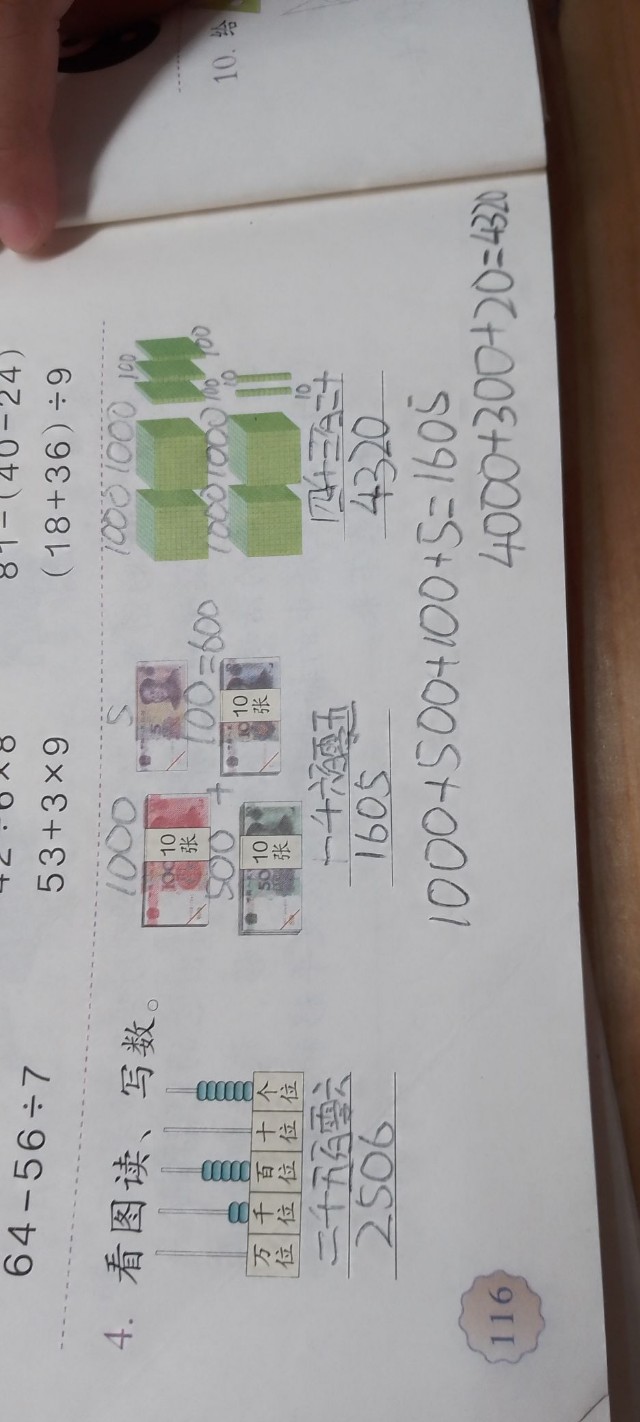 10. 绘
64－56÷7
53+3×9
81－(40－24)
(18+36)÷9
4. 看图读、写数。
万位 千位 百位 十位 个位
二千五百零六
2506
1000
5
10张
500+100=600
10张
10张
一千六百零五
1605
1000 1000 100 100 100
1000 1000 10 10
四千三百二十
4320
1000+500+100+5=1605
4000+300+20=4320
116